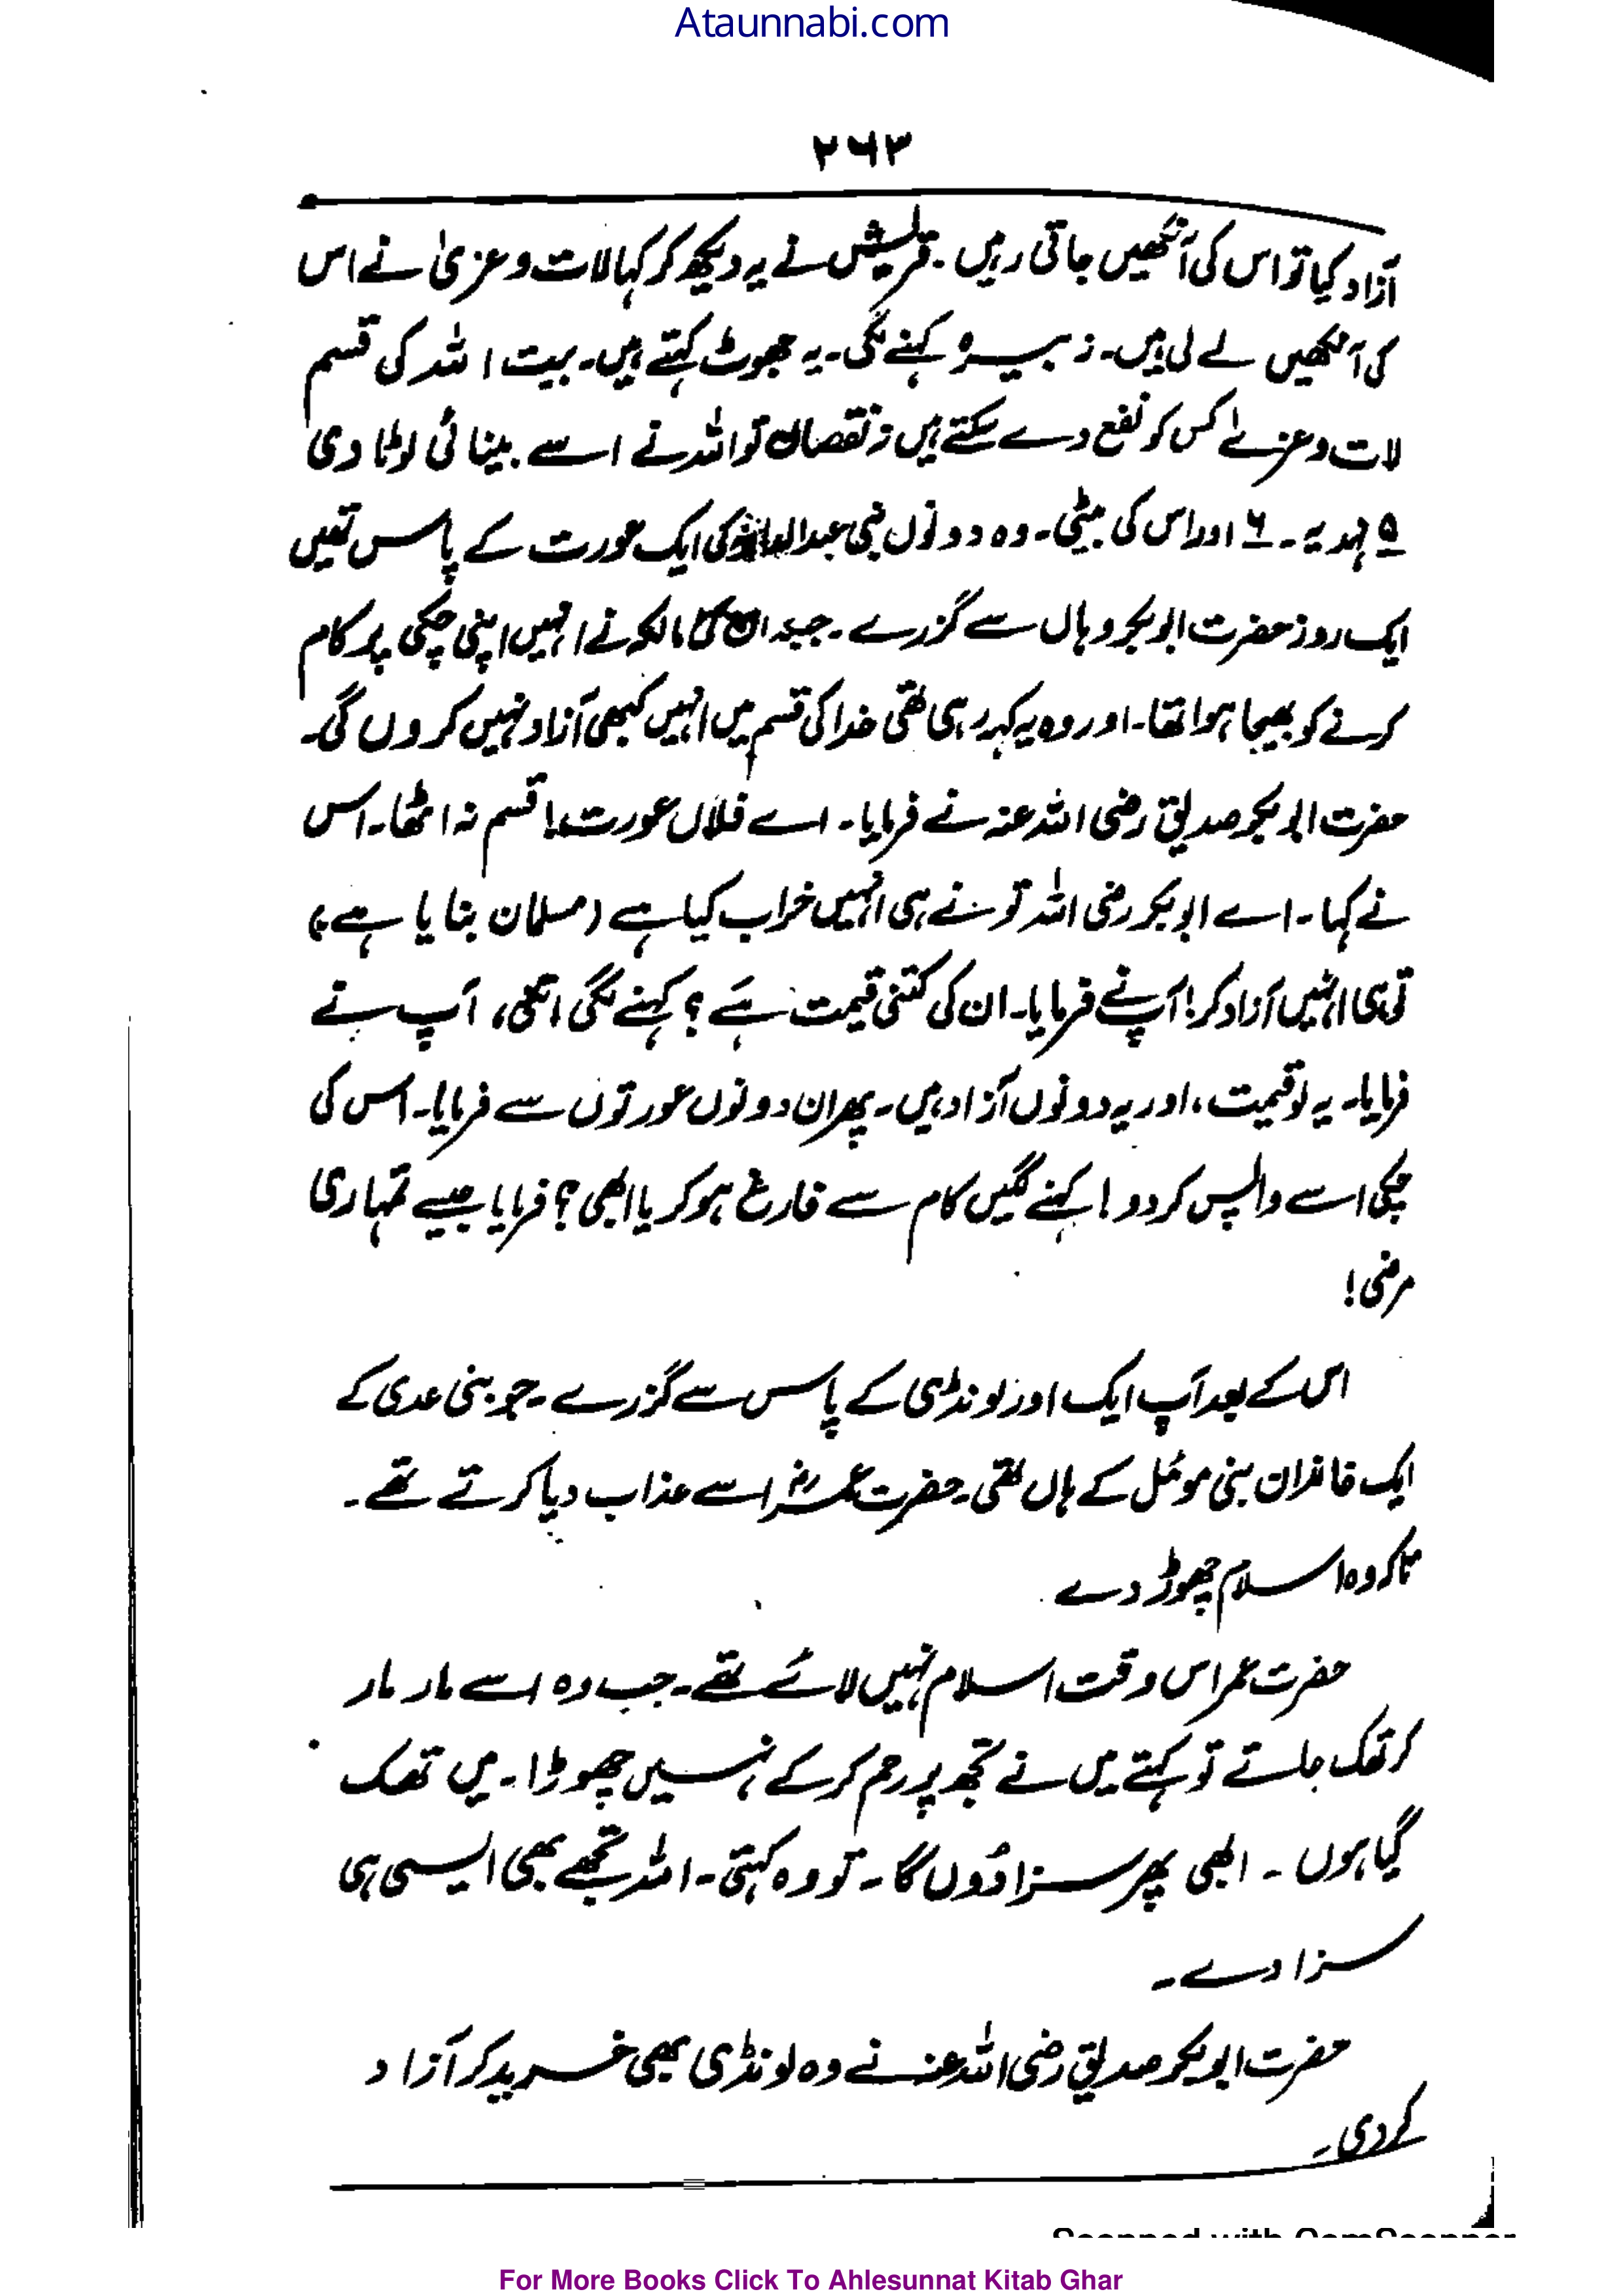 Ataunnabi.com
۲۶۳
آزاد کیا تو اس کی آنکھیں جاتی رہیں۔ قریش نے یہ دیکھ کر کہا لات و عزیٰ نے اس
کی آنکھیں لے لی ہیں۔ زبیرہ کہنے لگی۔ یہ جھوٹ کہتے ہیں۔ بیت اللہ کی قسم
لات و عزےٰ کس کو نفع دے سکتے ہیں نہ نقصان تو اللہ نے اسے بینائی لوٹا دی
۵ ہدیہ۔ ۶ اور اس کی بیٹی۔ وہ دونوں بنی عبدالدار کی ایک عورت کے پاس تھیں
ایک روز حضرت ابوبکر وہاں سے گزرے۔ جبکہ ان کی مالکہ نے انہیں اپنی چکی پر کام
کرنے کو بھیجا ہوا تھا۔ اور وہ یہ کہہ رہی تھی خدا کی قسم میں انہیں کبھی آزاد نہیں کروں گی۔
حضرت ابوبکر صدیق رضی اللہ عنہ نے فرمایا۔ اے فلاں عورت! قسم نہ اٹھا۔ اس
نے کہا۔ اے ابوبکر رضی اللہ تو نے ہی انہیں خراب کیا ہے (مسلمان بنایا ہے)
تو ہی انہیں آزاد کر! آپ نے فرمایا۔ ان کی کتنی قیمت ہے ؟ کہنے لگی اتنی، آپ نے
فرمایا۔ یہ لو قیمت، اور یہ دونوں آزاد ہیں۔ پھر ان دونوں عورتوں سے فرمایا۔ اس کی
چکی اسے واپس کر دو! کہنے لگیں کام سے فارغ ہو کر یا ابھی ؟ فرمایا جیسے تمہاری
مرضی!
اس کے بعد آپ ایک اور لونڈی کے پاس سے گزرے۔ جو بنی عدی کے
ایک خاندان بنی مومُل کے ہاں تھی۔ حضرت عمرؓ اسے عذاب دیا کرتے تھے۔
تاکہ وہ اسلام چھوڑ دے
حضرت عمر اس وقت اسلام نہیں لائے تھے۔ جب وہ اسے مار مار
کر تھک جاتے تو کہتے میں نے تجھ پر رحم کر کے نہیں چھوڑا۔ میں تھک
گیا ہوں۔ ابھی پھر سزا دُوں گا۔ تو وہ کہتی۔ اللہ تجھے بھی ایسی ہی
سزا دے۔
حضرت ابوبکر صدیق رضی اللہ عنہ نے وہ لونڈی بھی خرید کر آزاد
کر دی۔
Scanned with CamScanner
For More Books Click To Ahlesunnat Kitab Ghar